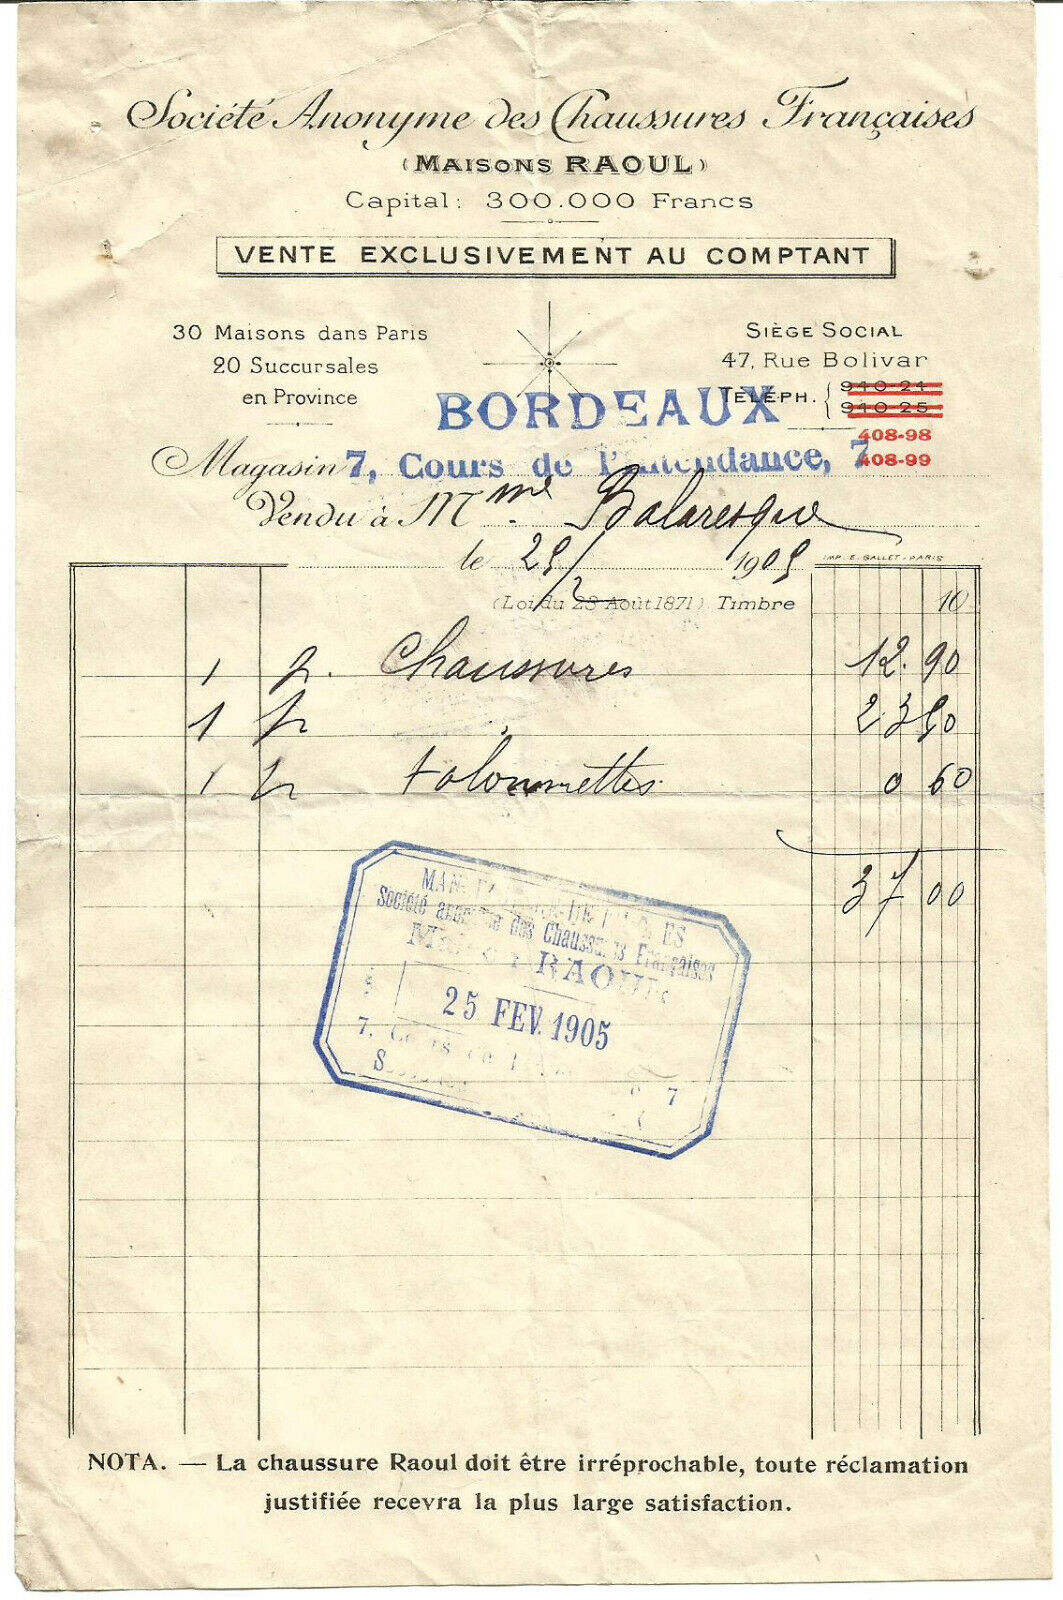 Société Anonyme des Chaussures Françaises
(MAISONS RAOUL)
Capital: 300.000 Francs
VENTE EXCLUSIVEMENT AU COMPTANT
30 Maisons dans Paris
20 Succursales
en Province
SIÈGE SOCIAL
47, Rue Bolivar
TÉLÉPH. { 940-24
940-25
408-98
408-99
BORDEAUX
Magasin 7, Cours de l'Intendance, 7
Vendu à Mme Balaresque
le 25/2 1905
IMP. E. GALLET - PARIS
(Loi du 23 Août 1871) Timbre 10
1 p. Chaussures 12.90
1 p " 23 50
1 p talonnettes 0 60
37 00
Société anonyme des Chaussures Françaises
RAOUL
25 FEV. 1905
7. 7
NOTA. — La chaussure Raoul doit être irréprochable, toute réclamation
justifiée recevra la plus large satisfaction.